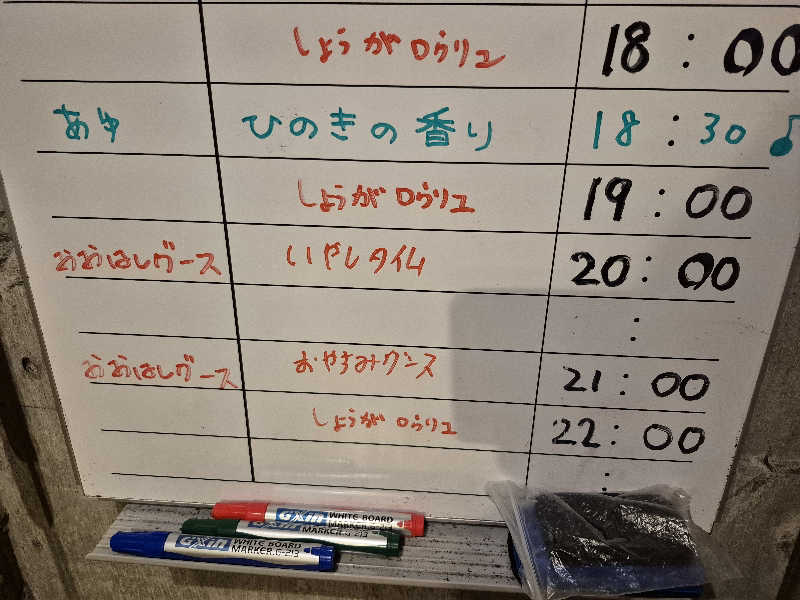 しょうがロウリュ 18:00
あゆ ひのきの香り 18:30♪
しょうがロウリュ 19:00
おおはしグース いやしタイム 20:00
:
おおはしグース おやすみグース 21:00
しょうがロウリュ 22:00
:
GXin WHITE BOARD MARKER.G-213
GXin WHITE BOARD MARKER.G-213
GXin WHITE BOARD MARKER.G-213